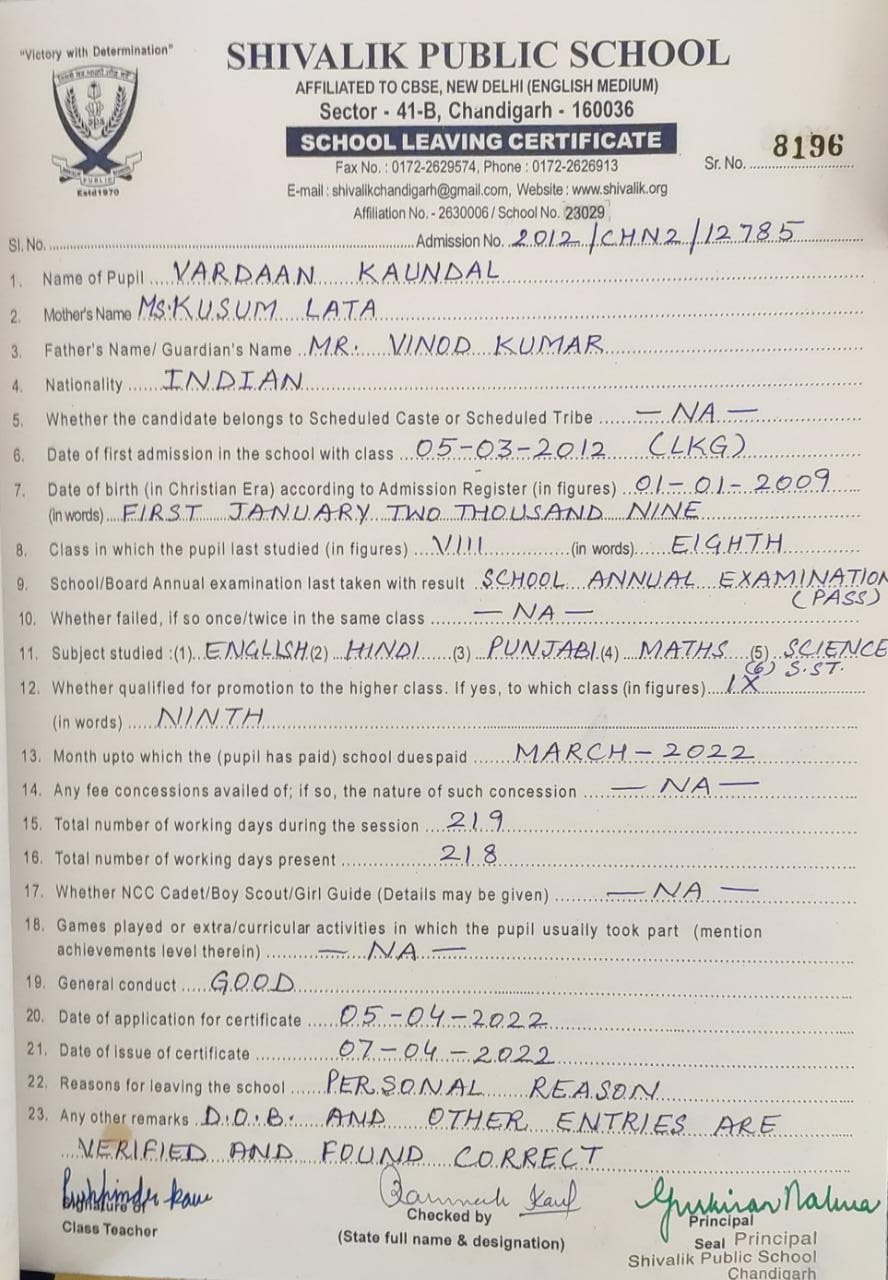 "Victory with Determination"
SHIVALIK PUBLIC SCHOOL
AFFILIATED TO CBSE, NEW DELHI (ENGLISH MEDIUM)
Sector - 41-B, Chandigarh - 160036
SCHOOL LEAVING CERTIFICATE
Fax No. : 0172-2629574, Phone : 0172-2626913
Sr. No. 8196
E-mail : shivalikchandigarh@gmail.com, Website : www.shivalik.org
Affiliation No. - 2630006 / School No. 23029
sps
PUBLIC
Estd1970
Sl. No. Admission No. 2012/CHN2/12785
1. Name of Pupil VARDAAN KAUNDAL
2. Mother's Name Ms. KUSUM LATA
3. Father's Name/ Guardian's Name MR. VINOD KUMAR
4. Nationality INDIAN
5. Whether the candidate belongs to Scheduled Caste or Scheduled Tribe — NA —
6. Date of first admission in the school with class 05-03-2012 (LKG)
7. Date of birth (in Christian Era) according to Admission Register (in figures) 01-01-2009
(in words) FIRST JANUARY TWO THOUSAND NINE
8. Class in which the pupil last studied (in figures) VIII (in words) EIGHTH
9. School/Board Annual examination last taken with result SCHOOL ANNUAL EXAMINATION
(PASS)
10. Whether failed, if so once/twice in the same class — NA —
11. Subject studied :(1) ENGLISH (2) HINDI (3) PUNJABI (4) MATHS (5) SCIENCE
(6) S.ST.
12. Whether qualified for promotion to the higher class. If yes, to which class (in figures) IX
(in words) NINTH
13. Month upto which the (pupil has paid) school duespaid MARCH-2022
14. Any fee concessions availed of; if so, the nature of such concession — NA —
15. Total number of working days during the session 219
16. Total number of working days present 218
17. Whether NCC Cadet/Boy Scout/Girl Guide (Details may be given) — NA —
18. Games played or extra/curricular activities in which the pupil usually took part (mention
achievements level therein) — NA —
19. General conduct GOOD
20. Date of application for certificate 05-04-2022
21. Date of issue of certificate 07-04-2022
22. Reasons for leaving the school PERSONAL REASON
23. Any other remarks D.O.B. AND OTHER ENTRIES ARE
VERIFIED AND FOUND CORRECT
Signature of
Class Teacher
Kaur
Checked by
(State full name & designation)
Principal
Seal Principal
Shivalik Public School
Chandigarh